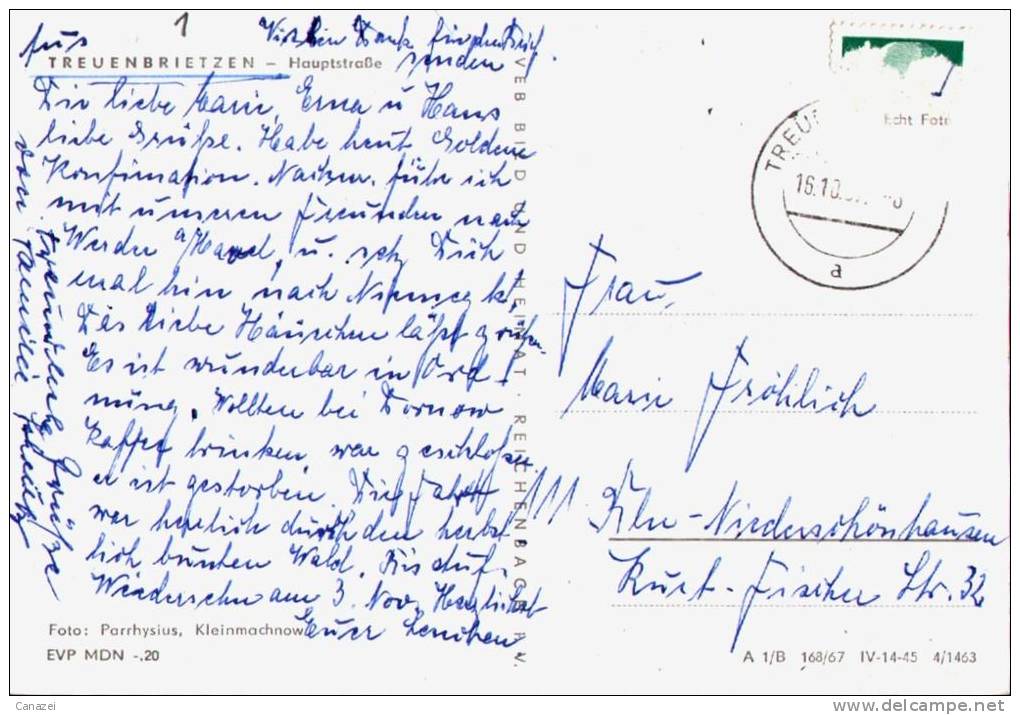 1
Vielen Dank für den Brief
aus senden!
TREUENBRIETZEN – Hauptstraße
Dir liebe Marie, Erna u Hans
liebe Grüße. Habe heut Goldene
Konfirmation. Nachm. fuhr ich
mit unseren Freunden nach
Werder a/Havel, u. Dich
mal hin nach Niemegk!
Das Liebe Häuschen läßt grüßen.
Es ist wunderbar in Ord-
nung. Wollten bei Dornow
Kaffee trinken, war geschloßen.
er ist gestorben. Die Fahrt
war herrlich durch den herbst-
lich bunten Wald. Bis auf
Wiedersehn am 3. Nov. Herzlichst
Euer Lenchen
freundliche Grüße
von Familie
Foto: Parrhysius, Kleinmachnow
EVP MDN -.20
VEB BILD UND HEIMAT · REICHENBACH I. V.
Echt Foto
TREU
16.10.
a
Frau,
Marie Fröhlich
111 Bln-Niederschönhausen
Kurt-Fischer Str. 32
A 1/B 168/67 IV-14-45 4/1463
Canazei
delcampe.net